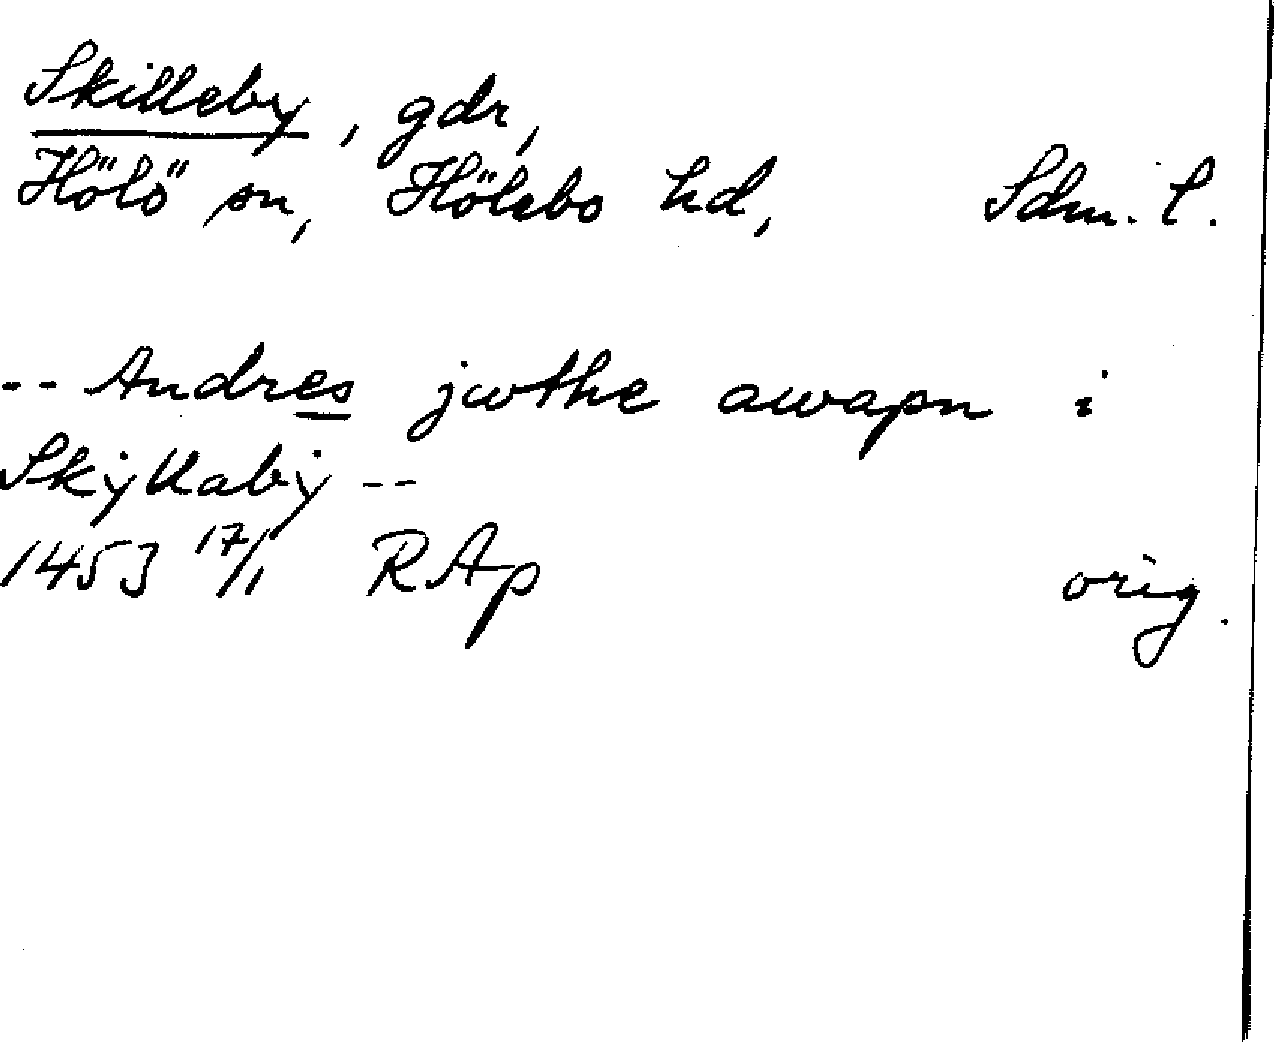 Skilleby, gdr,
Hölö sn, Hölebo hd, Sdm. l.
-- Andres jwthe awapn i
Skẏllabẏ --
1453 17/1 RAp orig.